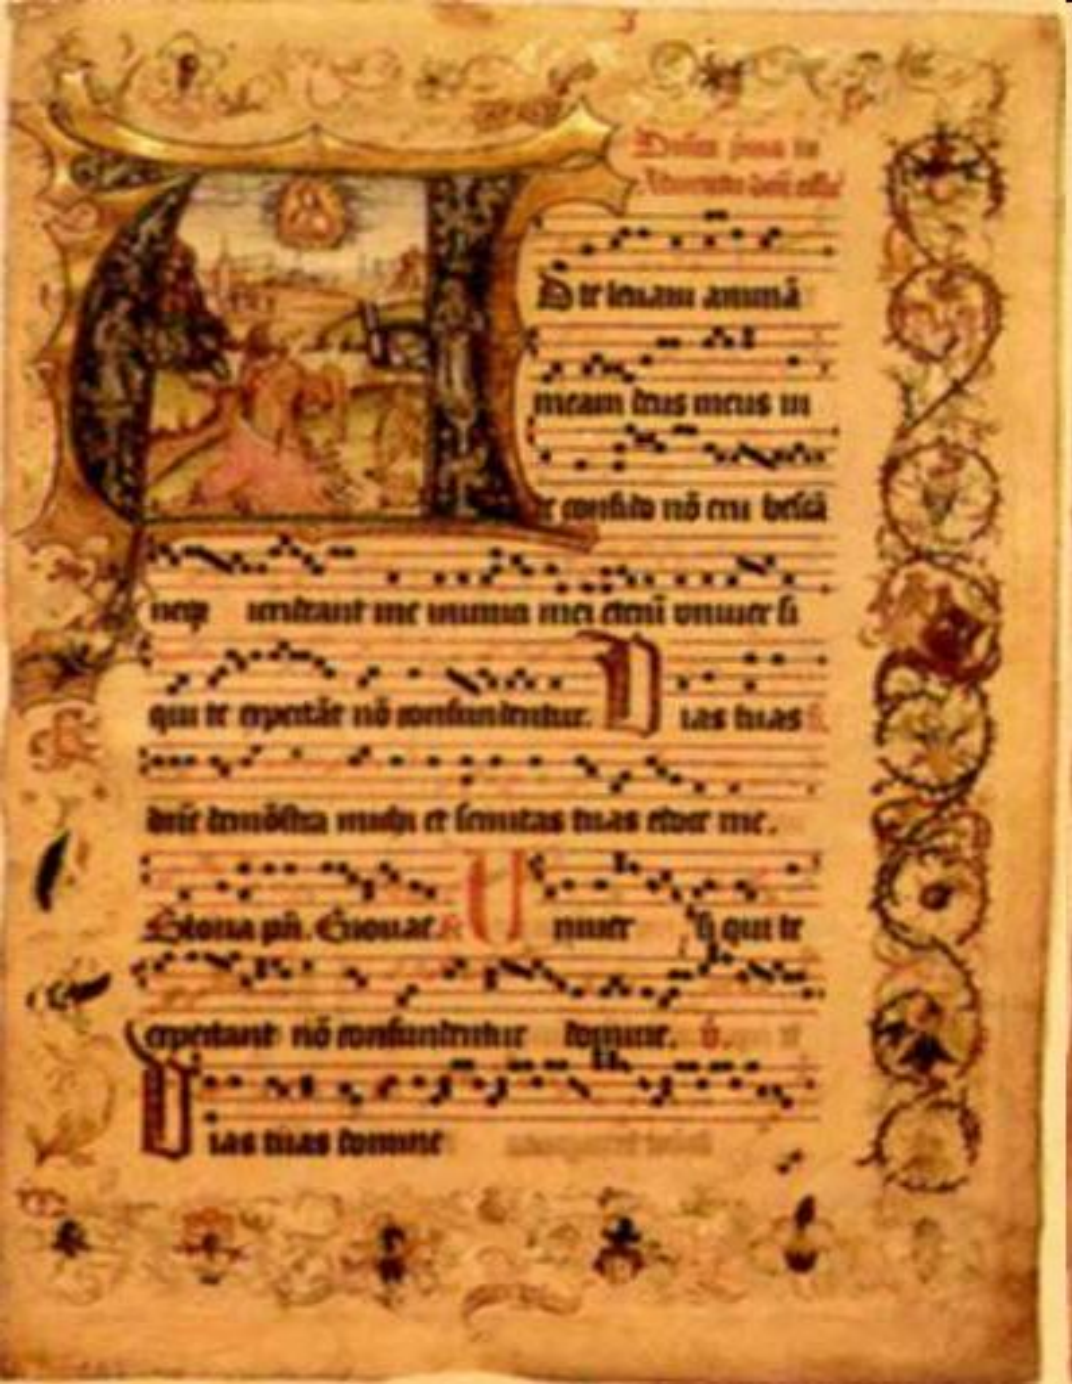 D te leuam animā
meam deus meus in
te confido nō eru bescā
neqꝫ irrideant me inimici mei etenī vniuer si
qui te expectāt nō confundentur. Vias tuas
dn̄e demōstra michi et semitas tuas edoce me.
Gloria pr̄i. Euouae. Vniuer si qui te
expectant nō confundentur domine.
Vias tuas domine